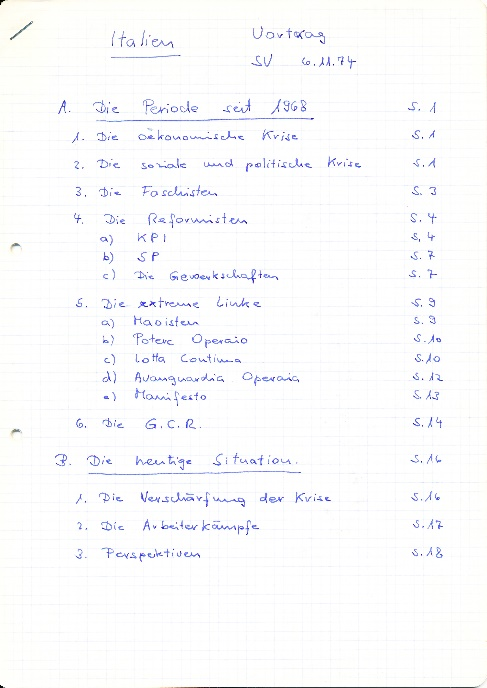 Italien Vortrag
SV 6.11.74
A. Die Periode seit 1968 S. 1
1. Die oekonomische Krise S. 1
2. Die soziale und politische Krise S. 1
3. Die Faschisten S. 3
4. Die Reformisten S. 4
a) KPI S. 4
b) SP S. 7
c) Die Gewerkschaften S. 7
5. Die extreme Linke S. 9
a) Maoisten S. 9
b) Potere Operaio S. 10
c) Lotta Continua S. 10
d) Avanguardia Operaia S. 12
e) Manifesto S. 13
6. Die G.C.R. S. 14
B. Die heutige Situation. S. 16
1. Die Verschärfung der Krise S. 16
2. Die Arbeiterkämpfe S. 17
3. Perspektiven S. 18